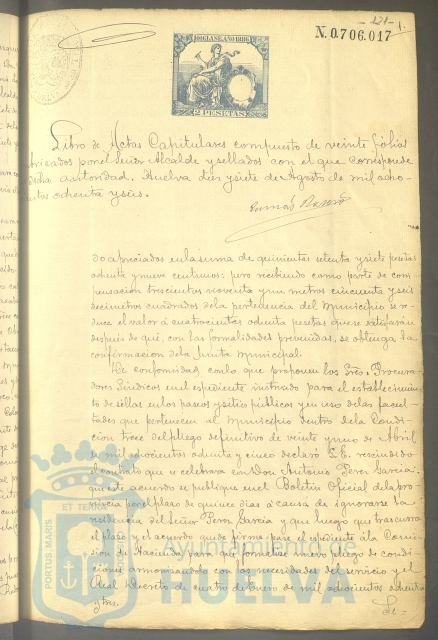 -121- 1.
N. 0.706.017
10ª CLASE. AÑO 1886
2 PESETAS
Libro de Actas Capitulares compuesto de veinte folios
rubricados por el Señor Alcalde y sellados con el que corresponde
dicha autoridad. Huelva diez y siete de Agosto de mil ocho-
cientos ochenta y seis.
do apreciados en la suma de quinientas setenta y siete pesetas
ochenta y nueve centimos: pero recibiendo como parte de com-
pensacion trescientos noventa y un metros cincuenta y seis
decimetros cuadrados de la pertenencia del Municipio se re-
duce el valor á cuatrocientas ochenta pesetas que se satisfarán
después de qué, con las formalidades prevenidas, se obtenga la
confirmacion de la Junta Municipal.
De conformidad con lo que proponen los Sres. Procura-
dores Sindicos en el espediente instruido para el establecimien-
to de sillas en los paseos y sitios públicos y en uso de las facul-
tades que pertenecen al Municipio dentro de la Condi-
cion trece del pliego definitivo de veinte y uno de Abril
de mil ochocientos ochenta y cinco declaró S.E. rescindido
el contrato que se celebrara con Don Antonio Perez Garcia:
que este acuerdo se publique en el Boletin Oficial de la pro-
vincia por el plazo de quince dias á causa de ignorarse la
residencia del Señor Perez Garcia y que luego que trascurra
el plazo y el acuerdo quede firme pase el espediente á la Comi-
sion de Hacienda para que formule nuevo pliego de condi-
ciones armonizando con las necesidades del servicio y el
Real Decreto de cuatro de Enero de mil ochocientos ochenta
y tres.
Se-
ET TERRÆ
PORTUS MARIS
Ayuntamiento de
HUELVA